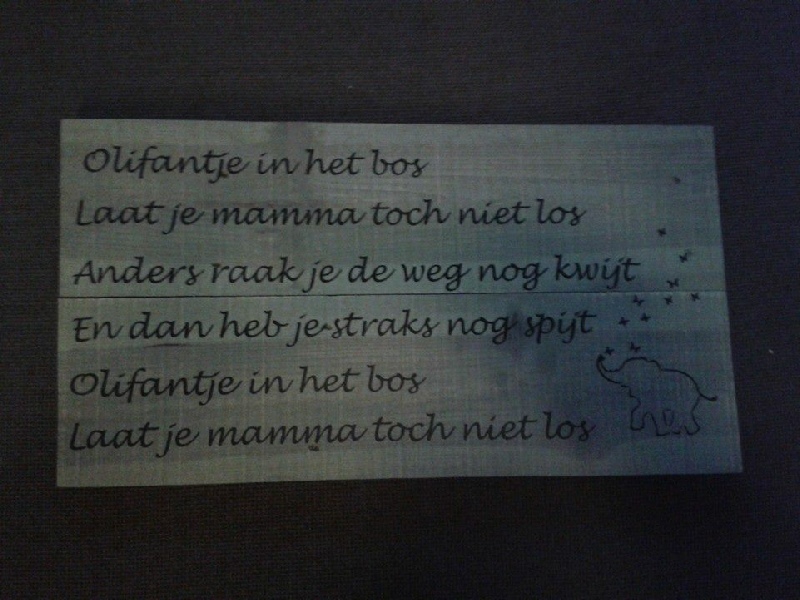 Olifantje in het bos
Laat je mamma toch niet los
Anders raak je de weg nog kwijt
En dan heb je straks nog spijt
Olifantje in het bos
Laat je mamma toch niet los